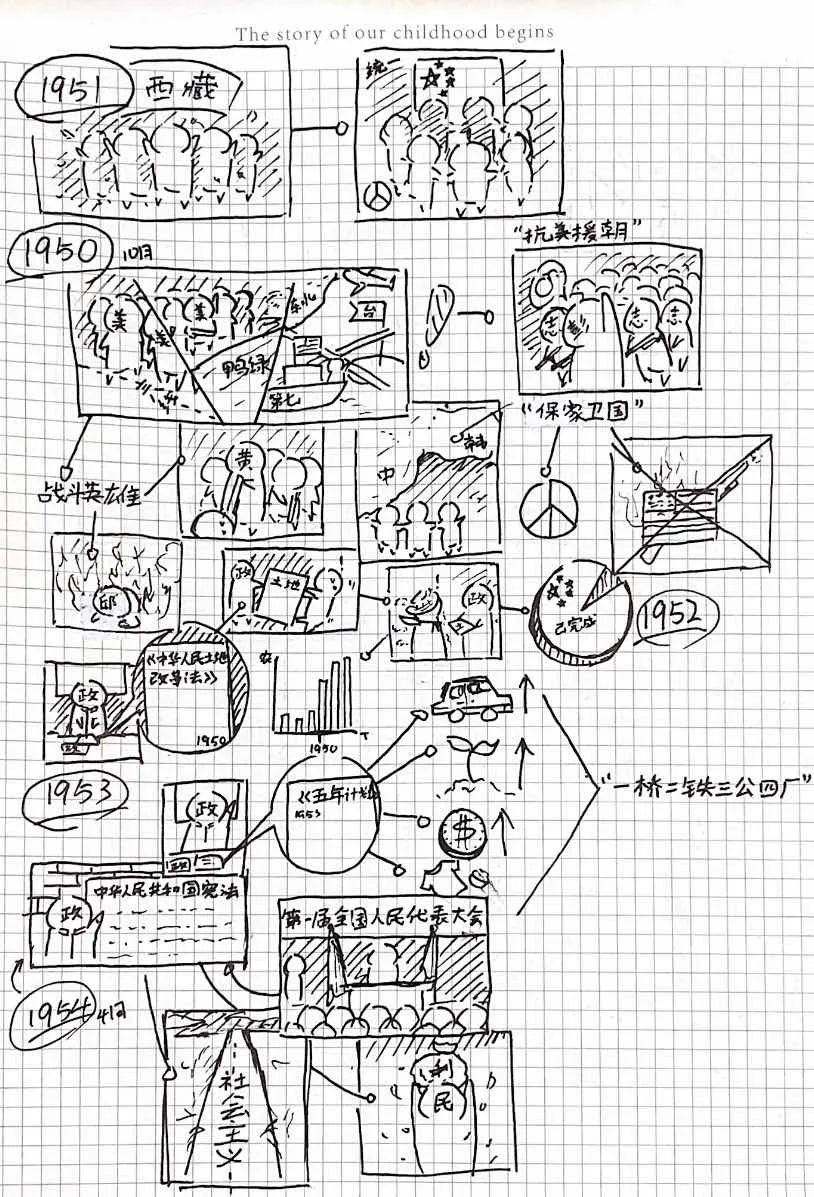 The story of our childhood begins
1951
西藏
统一
1950
10月
"抗美援朝"
美
美
美
东北
台
鸭绿
第七
志
志
"保家卫国"
战斗英雄
黄
中
韩
邱
政
土地
政
已完成
1952
政
《中华人民土地
改革法》
1950
农
1950
T
1953
政
《五年计划
1953
$
"一桥二铁三公四厂"
政
三
政
中华人民共和国宪法
第一届全国人民代表大会
1954
社会主义
利
民